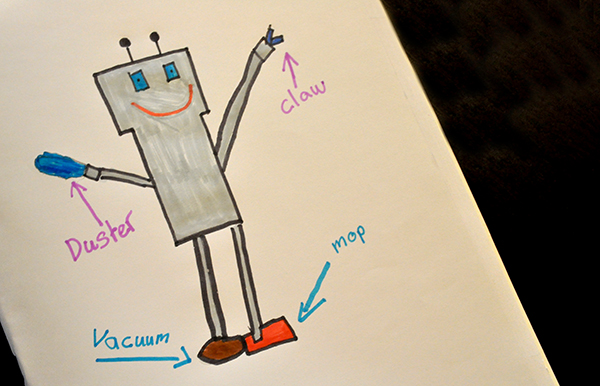 claw
Duster
mop
Vacuum